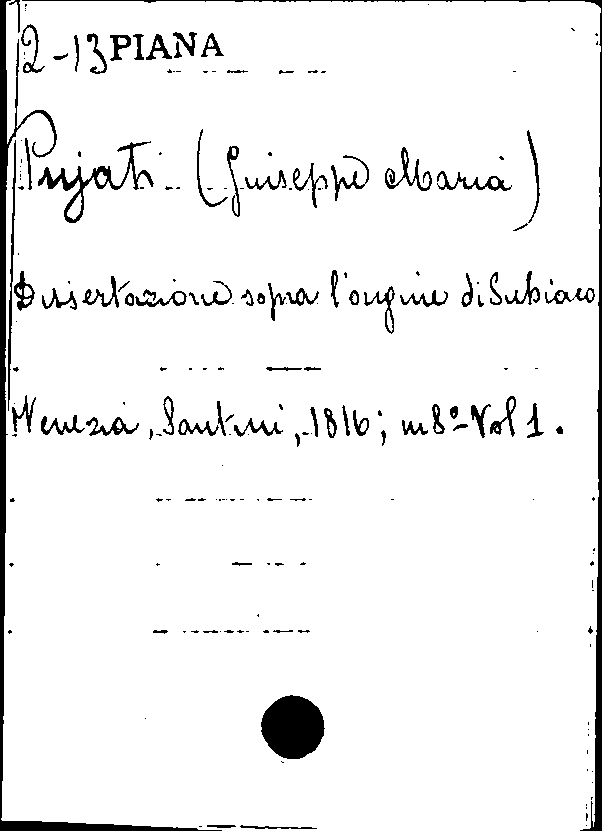 2-13 PIANA
Pujati (Giuseppe Maria)
Dissertazione sopra l'origine di Subiaco
Venezia, Santini, 1816; in 8º - Vol 1.